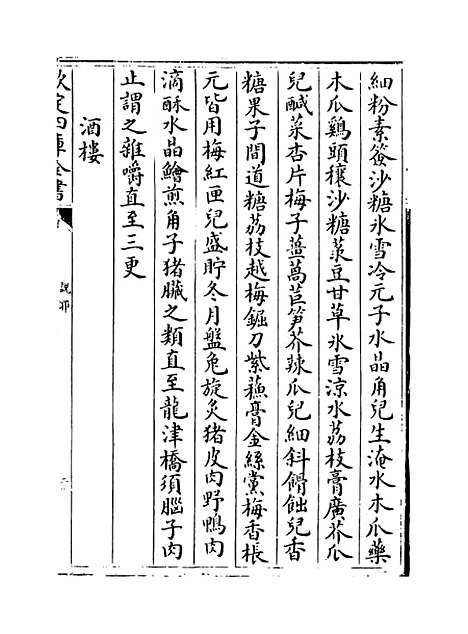 細粉素簽沙糖氷雪冷元子水晶角兒生淹水木瓜藥
木瓜鷄頭穰沙糖菉豆甘草氷雪涼水荔枝膏廣芥瓜
兒醎菜杏片梅子薑萵苣笋芥辣瓜兒細斜餶蝕兒香
糖果子間道糖荔枝越梅鋸刀紫蘇膏金絲黨梅香棖
元皆用梅紅匣兒盛貯冬月盤兔旋炙猪皮肉野鴨肉
滴酥水晶鱠煎角子猪臟之類直至龍津橋須腦子肉
止謂之雜嚼直至三更
酒樓
欽定四庫全書
說郛